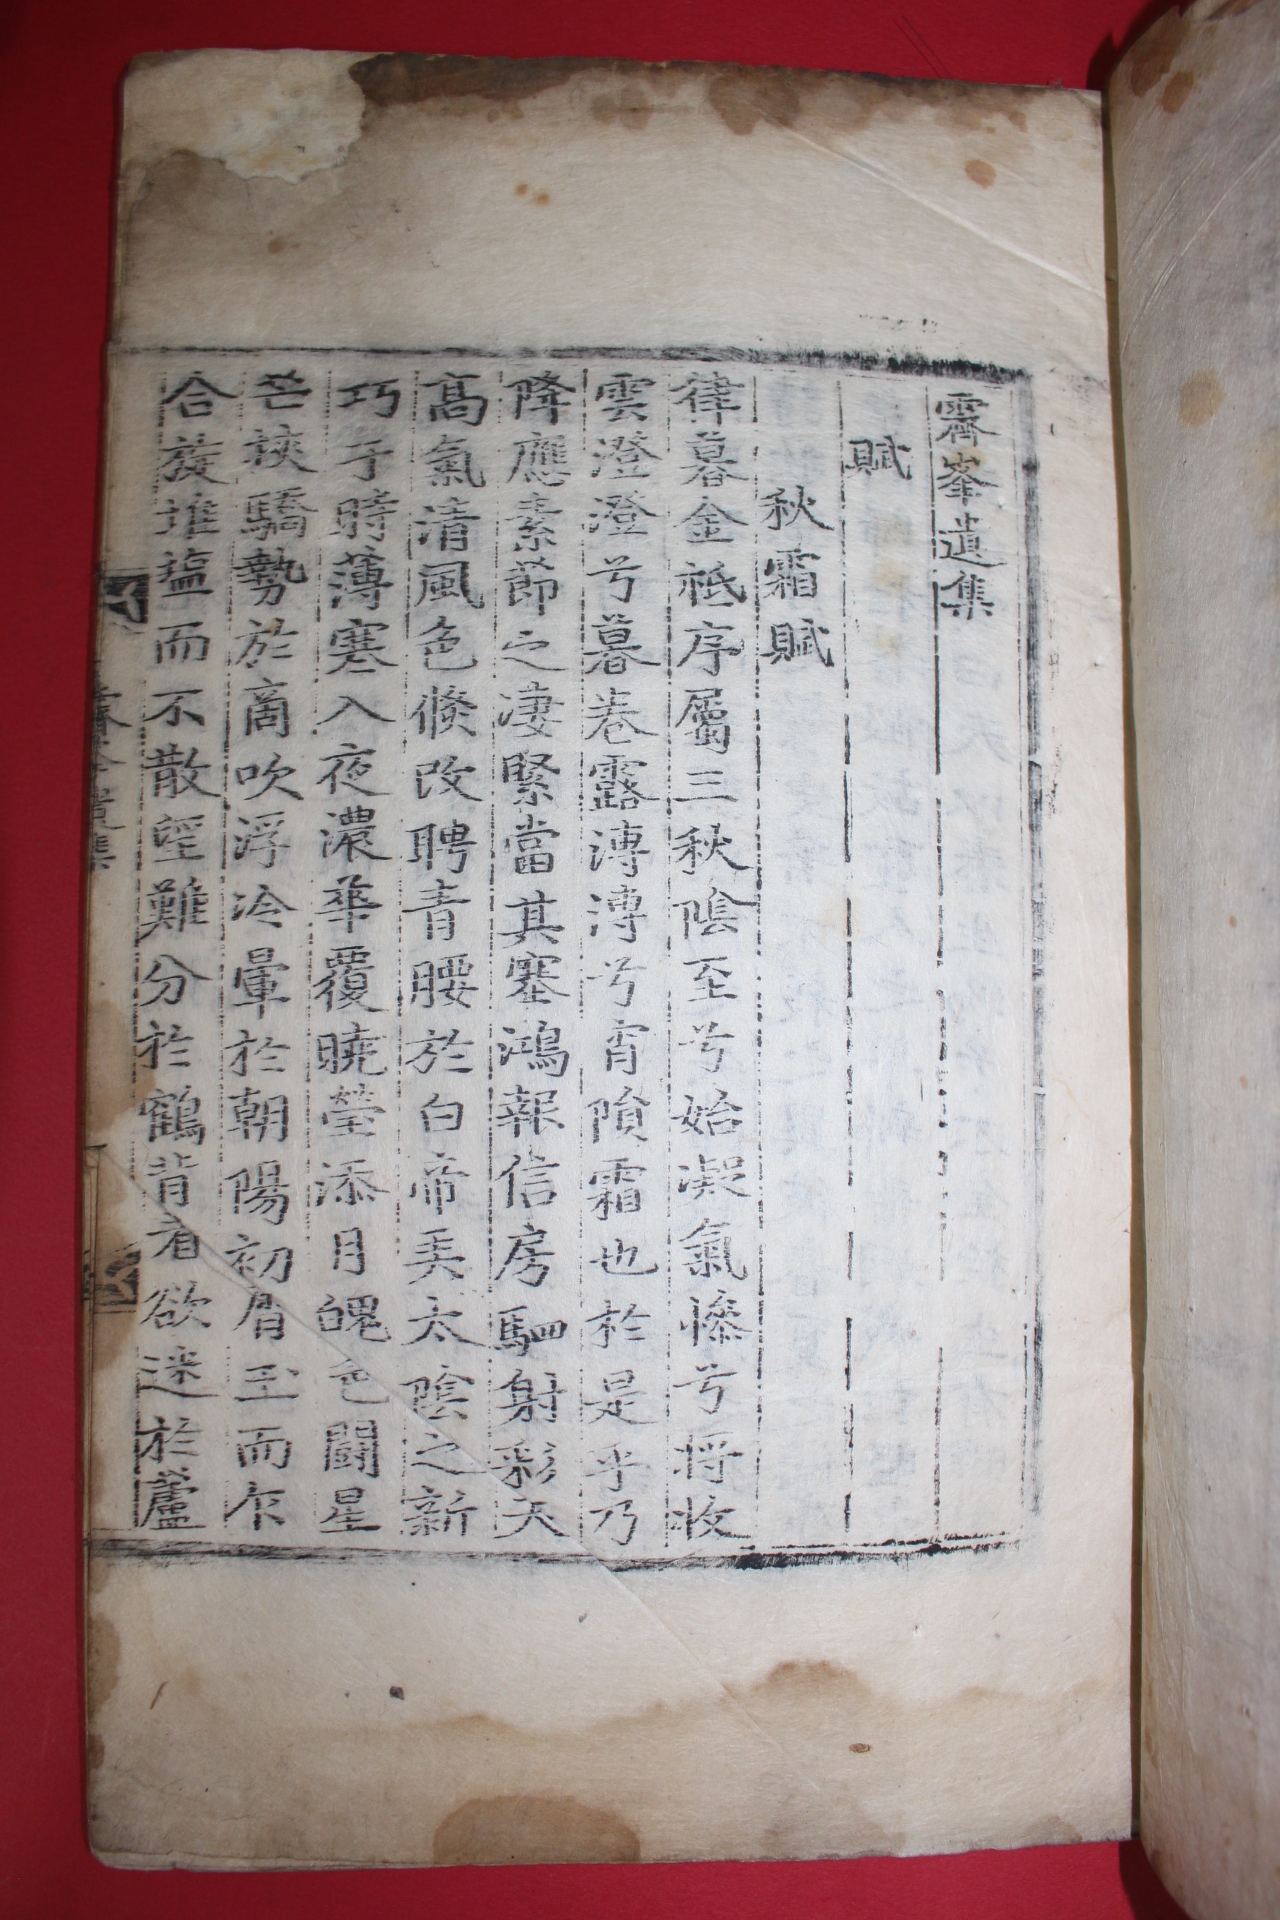 霽峯遺集
賦
秋霜賦
律暮金祗序屬三秋陰至兮始凝氣慘兮將收
雲澄澄兮暮卷露漙漙兮宵隕霜也於是乎乃
降應素節之凄緊當其塞鴻報信房駟射彩天
高氣清風色倏改聘青腰於白帝美太陰之新
巧于時薄寒入夜濃華覆曉瑩添月魄色鬪星
芒挾驕勢於啇吹浮冷暈於朝陽初屑玉而乍
合蔆堆塩而不散 難分於鶴背看欲迷於蘆
霽峯遺集